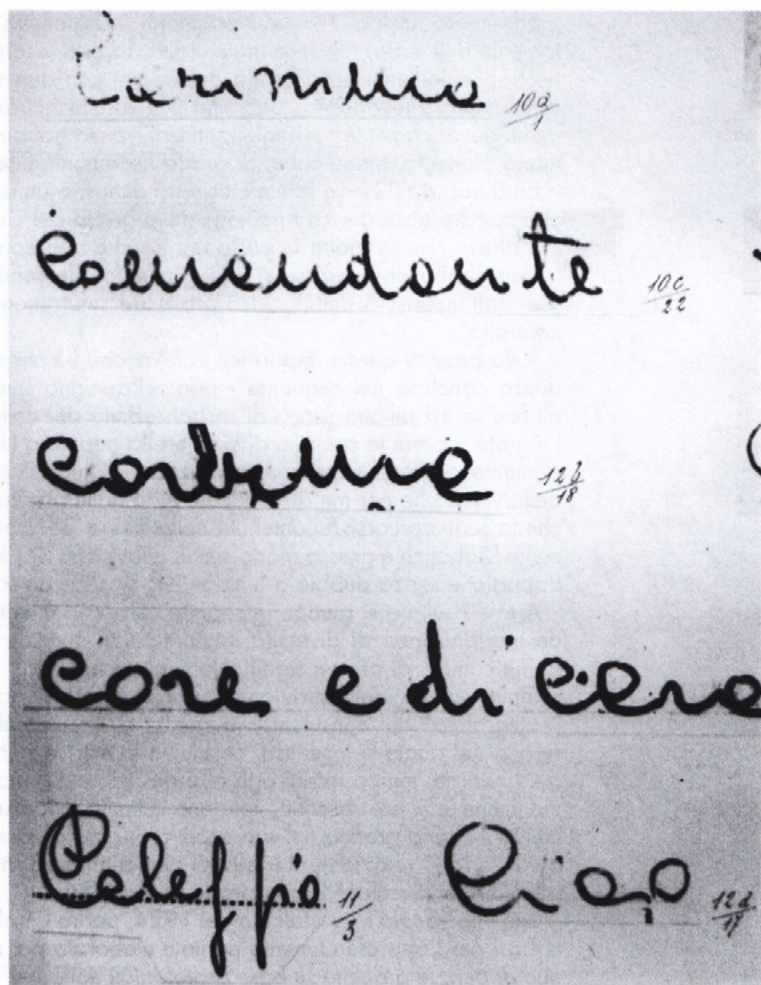 Carmine 10a/1
Comandante 10c/22
12b/18
core e di cera
Caleffio 11/3 Ciao 12a/17